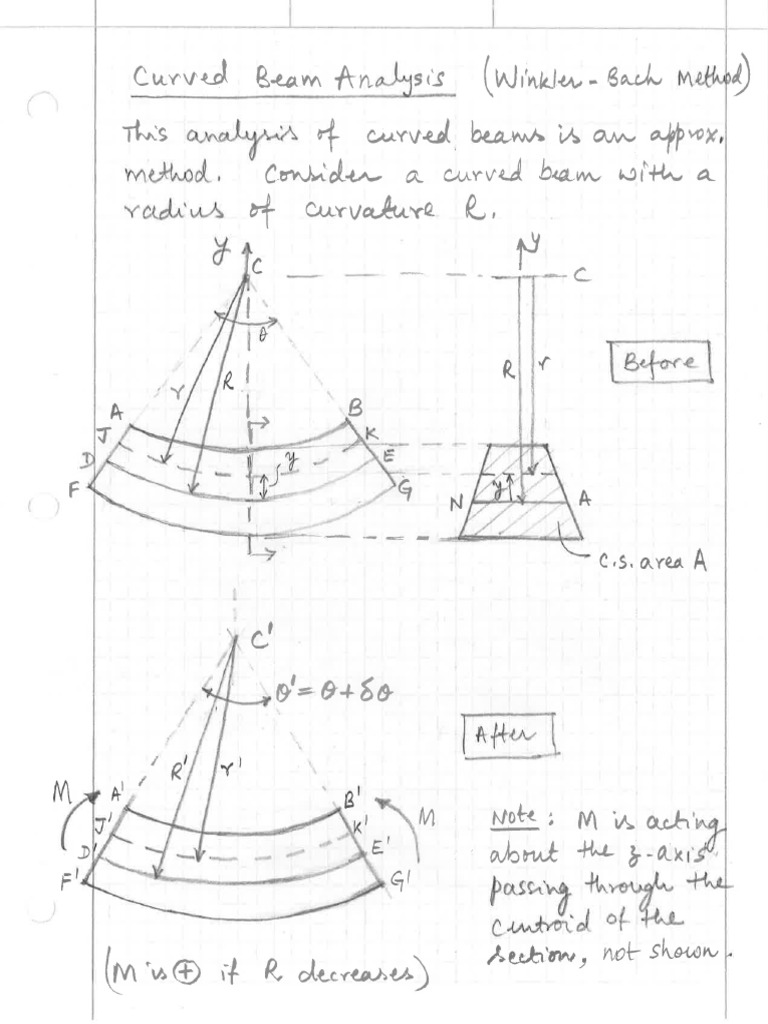 Curved Beam Analysis (Winkler-Bach Method)
This analysis of curved beams is an approx.
method. Consider a curved beam with a
radius of curvature R.
y
C
θ
r
R
A
B
J
K
D
E
F
G
y
y
C
R
r
Before
y
N
A
c.s. area A
C'
θ' = θ + δθ
R'
r'
After
M
A'
B'
M
J'
K'
D'
E'
F'
G'
Note: M is acting
about the z-axis
passing through the
centroid of the
section, not shown.
(M is ⊕ if R decreases)